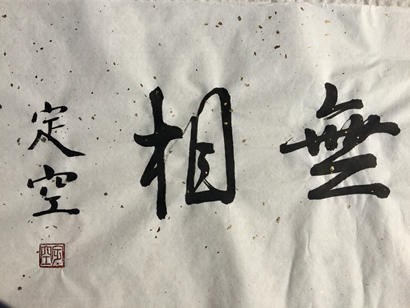 無相
定空